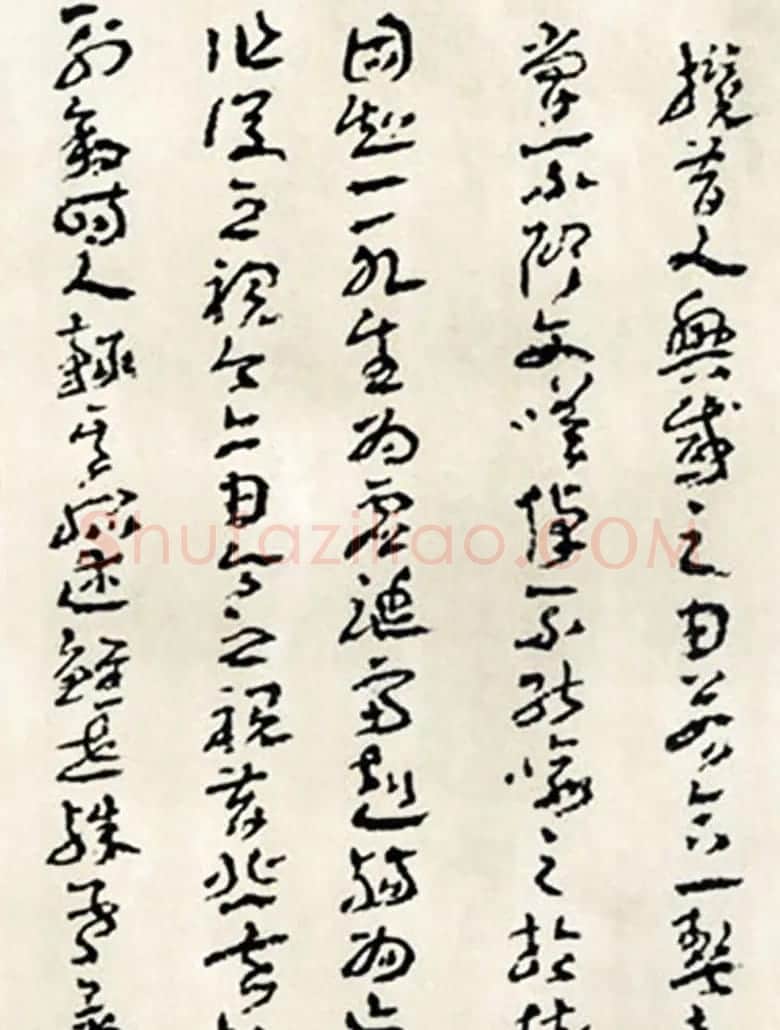 攬昔人興感之由若合一契
嘗不臨文嗟悼不能喻之於
固知一死生為虛誕齊彭殤為
作後之視今亦由今之視昔悲
列敘時人錄其所述雖世殊事
Shufaziliao.COM